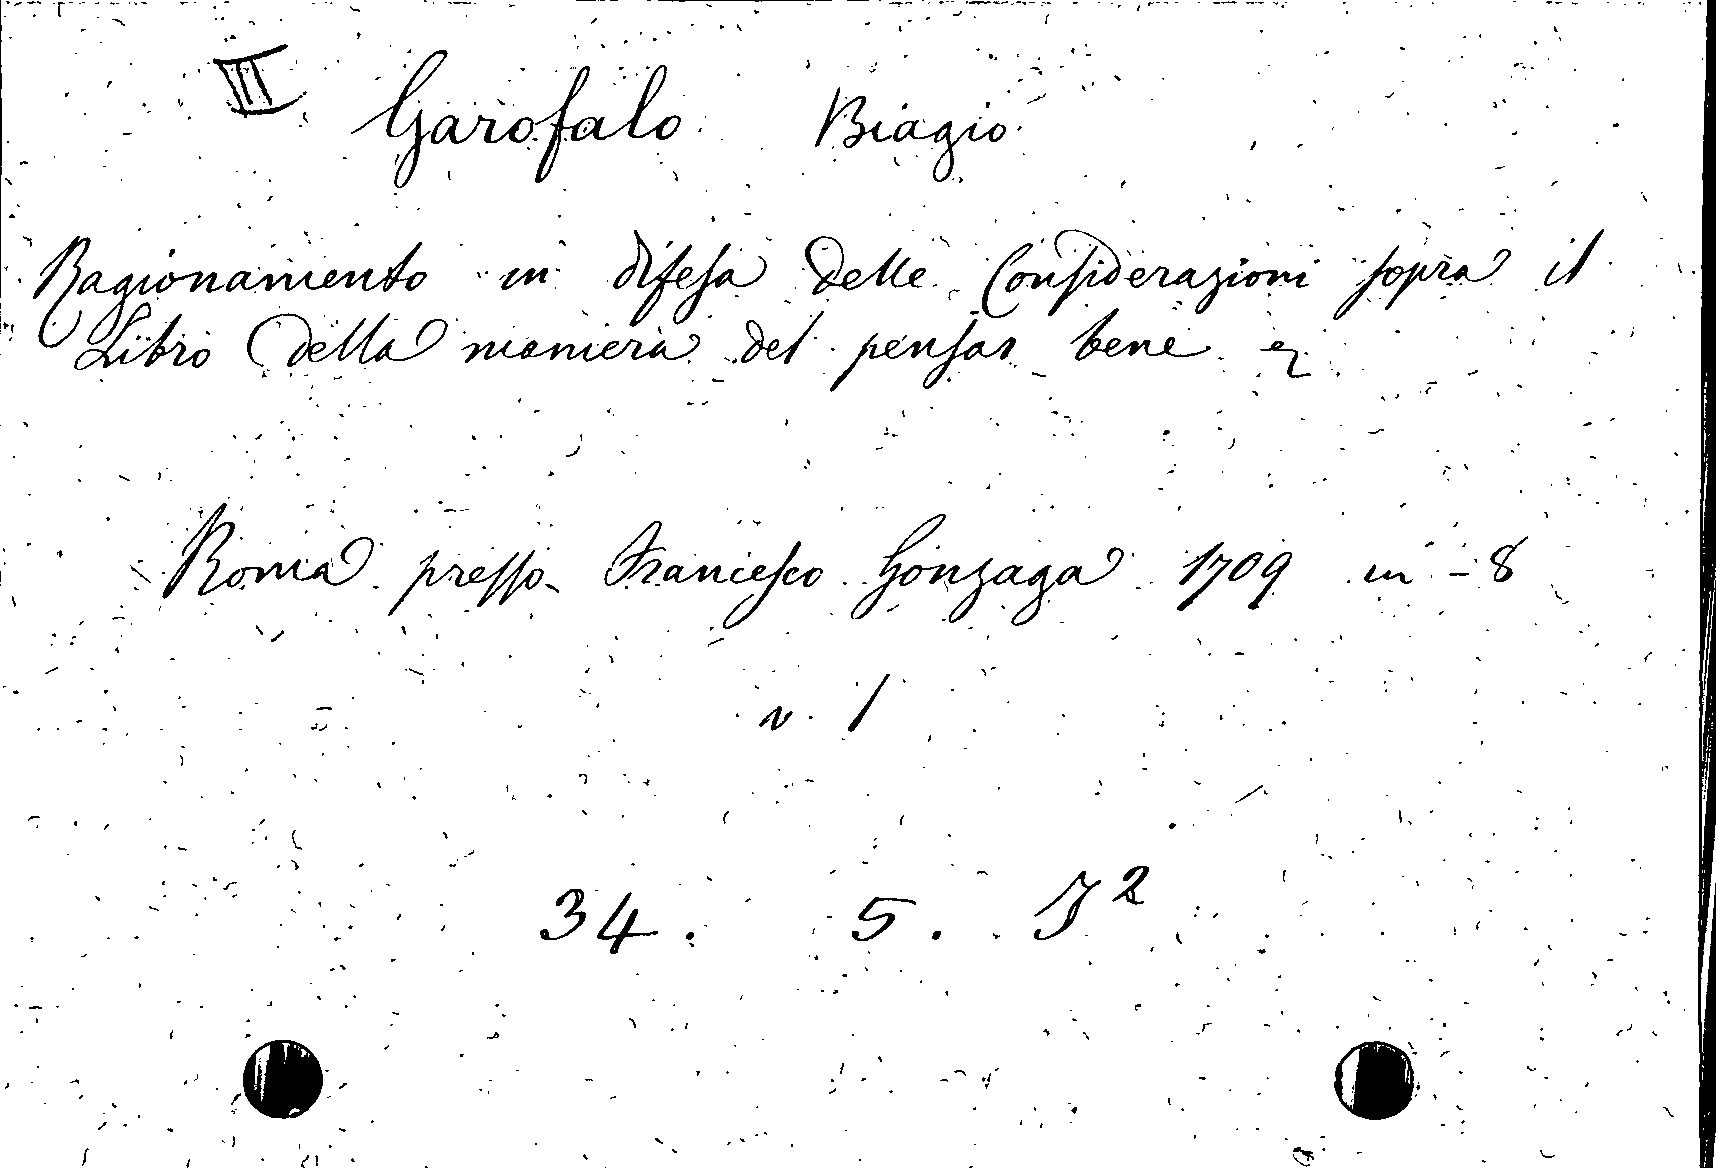 III Garofalo Biagio
Ragionamento in difesa delle Considerazioni sopra il
Libro della maniera del pensar bene
Roma presso Francesco Gonzaga 1709 in - 8
v. 1
34. 5. J²